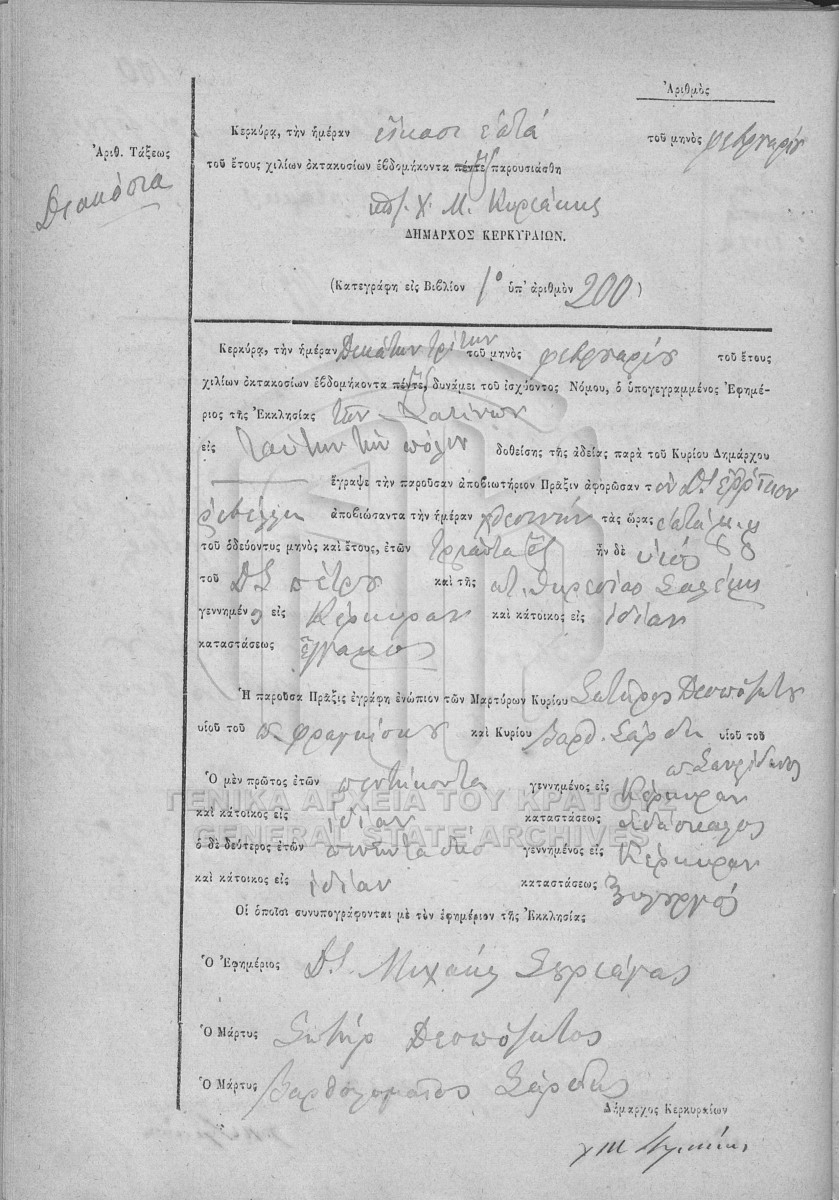 Ἀριθμὸς
Κερκύρᾳ, τὴν ἡμέραν εἴκοσι ἑπτά τοῦ μηνὸς φεβρουαρίου
Ἀριθ. Τάξεως
τοῦ ἔτους χιλίων ὀκτακοσίων ἑβδομήκοντα πέντε ἓξ παρουσιάσθη
Διακόσια
Χ. Μ. Κυριάκης
ΔΗΜΑΡΧΟΣ ΚΕΡΚΥΡΑΙΩΝ.
(Κατεγράφη εἰς Βιβλίον 1ο ὑπ' ἀριθμὸν 200)
Κερκύρᾳ, τὴν ἡμέραν Δεκάτην τρίτην τοῦ μηνὸς φεβρουαρίου τοῦ ἔτους
χιλίων ὀκτακοσίων ἑβδομήκοντα πέντε, ἓξ δυνάμει τοῦ ἰσχύοντος Νόμου, ὁ ὑπογεγραμμένος Ἐφημέ-
ριος τῆς Ἐκκλησίας τῶν Λατίνων
εἰς ταύτην τὴν πόλιν δοθείσης τῆς ἀδείας παρὰ τοῦ Κυρίου Δημάρχου
ἔγραψε τὴν παροῦσαν ἀποβιωτήριον Πρᾶξιν ἀφορῶσαν τὸν Δρ ἐρρῖκον
ἀποβιώσαντα τὴν ἡμέραν χθεσινήν τὰς ὥρας ἑπτά
τοῦ ὁδεύοντος μηνὸς καὶ ἔτους, ἐτῶν τριάντα ἓξ ἦν δὲ υἱός
τοῦ Δρ πέτρου καὶ τῆς
γεννημένος εἰς Κέρκυραν καὶ κάτοικος εἰς ἰδίαν
καταστάσεως ἔγγαμος
Ἡ παροῦσα Πρᾶξις ἐγράφη ἐνώπιον τῶν Μαρτύρων Κυρίου Σωτῆρος Δεσπότου
υἱοῦ τοῦ π. φραγκίσκου καὶ Κυρίου Βαρθ. Σάρδη υἱοῦ τοῦ
π. Σπυρίδωνος
Ὁ μὲν πρῶτος ἐτῶν πεντήκοντα γεννημένος εἰς Κέρκυραν
καὶ κάτοικος εἰς ἰδίαν καταστάσεως διδάσκαλος
ὁ δὲ δεύτερος ἐτῶν γεννημένος εἰς Κέρκυραν
καὶ κάτοικος εἰς ἰδίαν καταστάσεως ζωγράφος
Οἱ ὁποῖοι συνυπογράφονται μὲ τὸν ἐφημέριον τῆς Ἐκκλησίας
Ὁ Ἐφημέριος Δρ Μιχαήλ
Ὁ Μάρτυς Σωτήρ
Ὁ Μάρτυς Βαρθολομαῖος Σάρδης
Δήμαρχος Κερκυραίων
ΓΕΝΙΚΑ ΑΡΧΕΙΑ ΤΟΥ ΚΡΑΤΟΥΣ
GENERAL STATE ARCHIVES